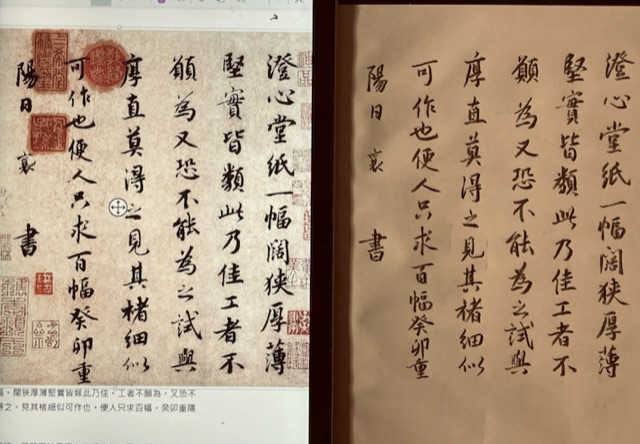 澄心堂紙一幅闊狹厚薄
堅實皆類此乃佳工者不
願為又恐不能為之試與
厚直莫得之見其楮細似
可作也便人只求百幅癸卯重
陽日襄書
幅，闊狹厚薄堅實皆類此乃佳，工者不願為，又恐不
得之，見其楮細似可作也，便人只求百幅，癸卯重陽
澄心堂紙一幅闊狹厚薄
堅實皆類此乃佳工者不
願為又恐不能為之試與
厚直莫得之見其楮細似
可作也便人只求百幅癸卯重
陽日襄書